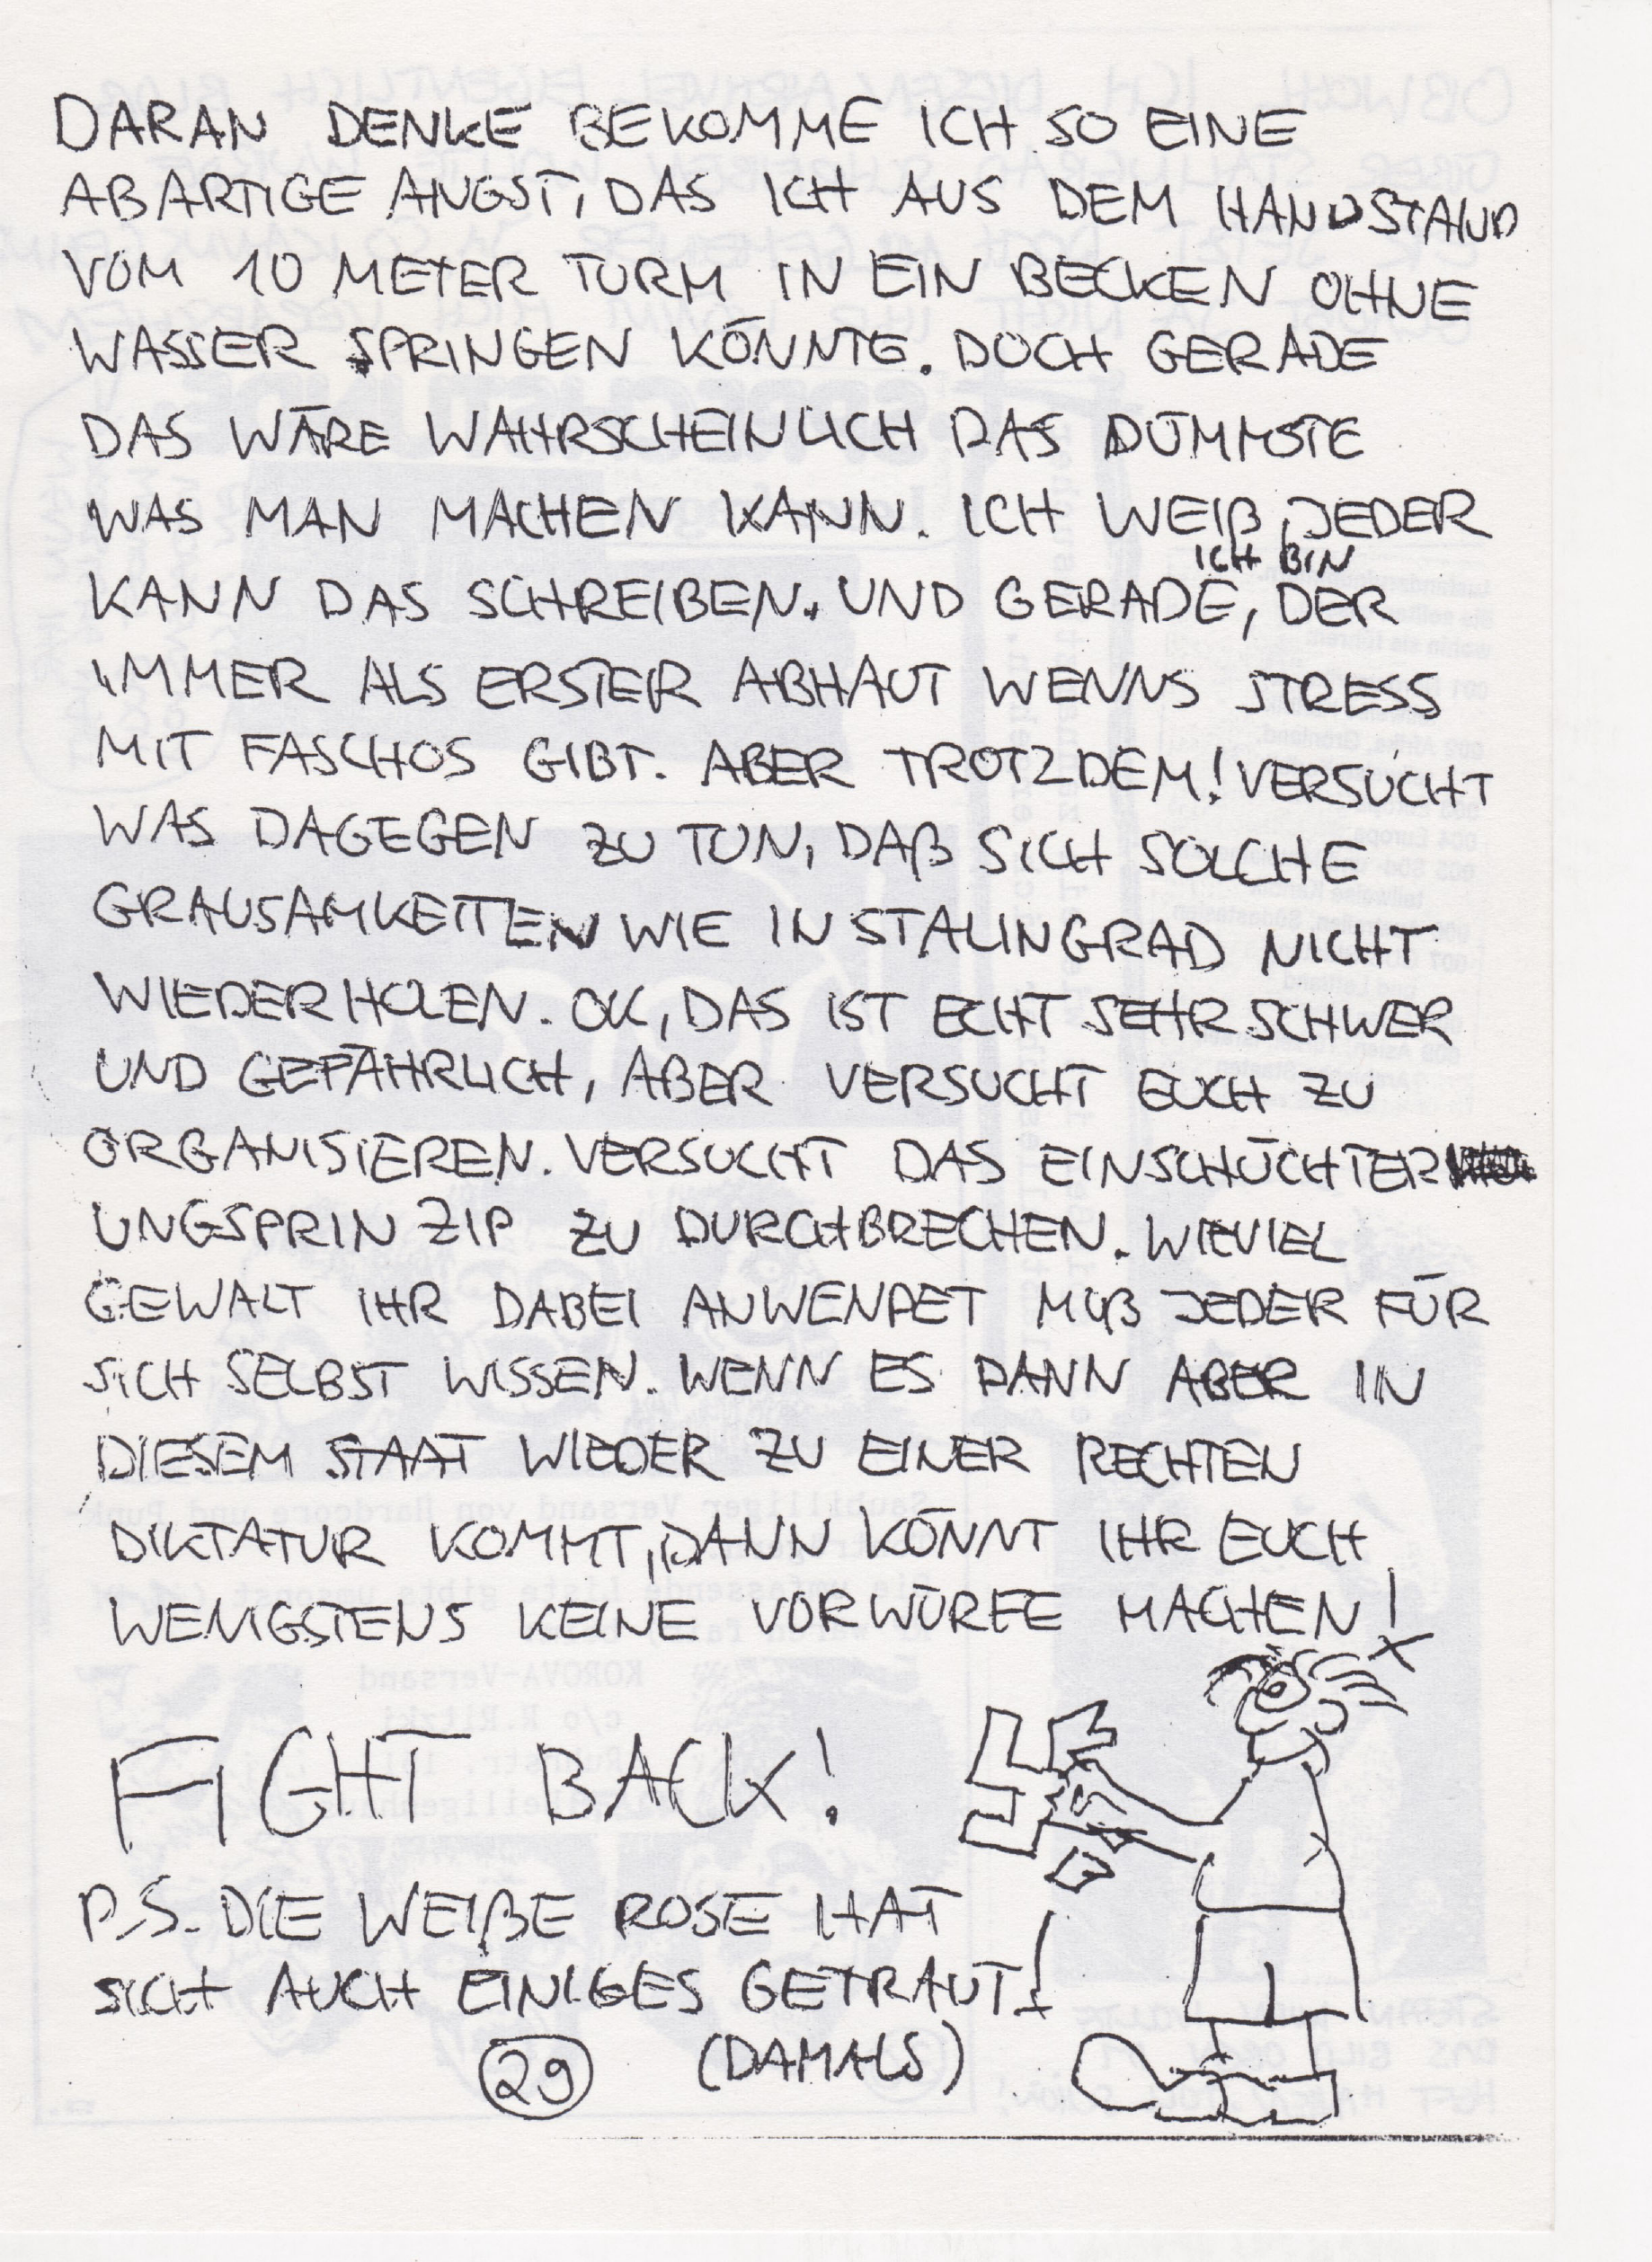 DARAN DENKE BEKOMME ICH SO EINE
ABARTIGE ANGST, DAS ICH AUS DEM HANDSTAND
VOM 10 METER TURM IN EIN BECKEN OHNE
WASSER SPRINGEN KÖNNTE. DOCH GERADE
DAS WÄRE WAHRSCHEINLICH DAS DÜMMSTE
WAS MAN MACHEN KANN. ICH WEIß, JEDER
ICH BIN
KANN DAS SCHREIBEN. UND GERADE, DER
IMMER ALS ERSTER ABHAUT WENNS STRESS
MIT FASCHOS GIBT. ABER TROTZDEM! VERSUCHT
WAS DAGEGEN ZU TUN, DAß SICH SOLCHE
GRAUSAMKEITEN WIE IN STALINGRAD NICHT
WIEDERHOLEN. OK, DAS IST ECHT SEHR SCHWER
UND GEFÄHRLICH, ABER VERSUCHT EUCH ZU
ORGANISIEREN. VERSUCHT DAS EINSCHÜCHTER
UNGSPRINZIP ZU DURCHBRECHEN. WIEVIEL
GEWALT IHR DABEI ANWENDET MUß JEDER FÜR
SICH SELBST WISSEN. WENN ES DANN ABER IN
DIESEM STAAT WIEDER ZU EINER RECHTEN
DIKTATUR KOMMT, DANN KÖNNT IHR EUCH
WENIGSTENS KEINE VORWÜRFE MACHEN!
FIGHT BACK!
P.S. DIE WEIßE ROSE HAT
SICH AUCH EINIGES GETRAUT!
29 (DAMALS)